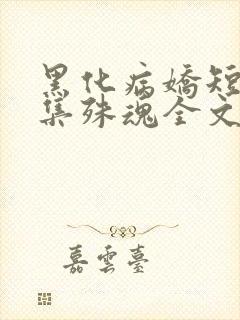 黑化病嬌短
集殊魂全文
嘉雲臺